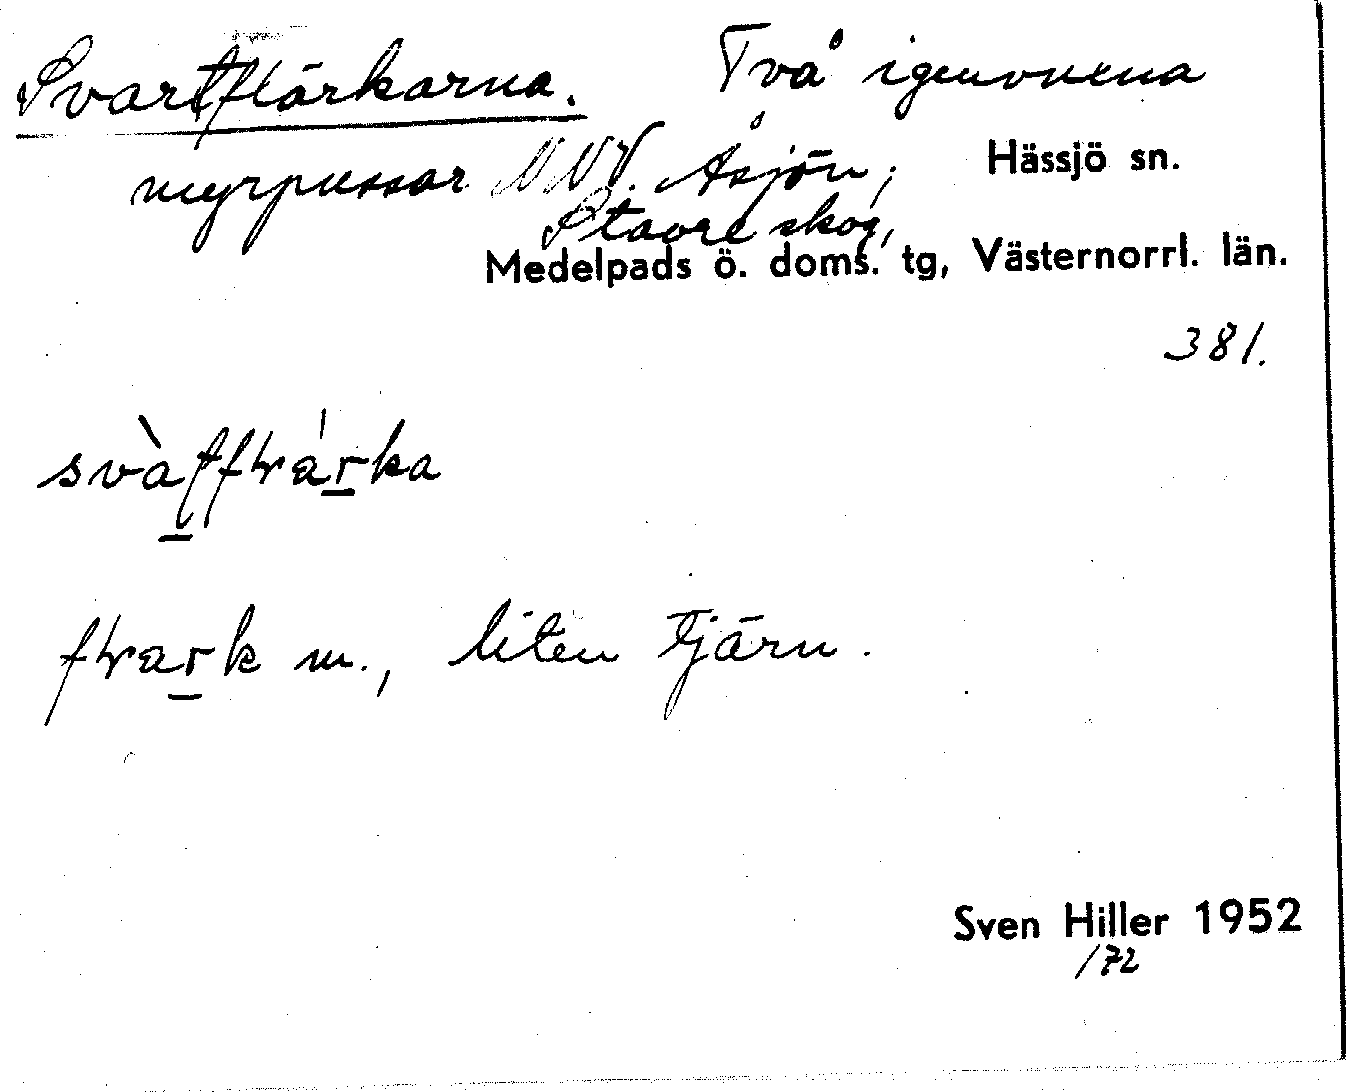 Svartflärkarna. Två igenvuxna
myrpussar NNV. Åsjön; Hässjö sn.
Stavre skog,
Medelpads ö. doms. tg, Västernorrl. län.
381.
liten tjärn.
Sven Hiller 1952
/72